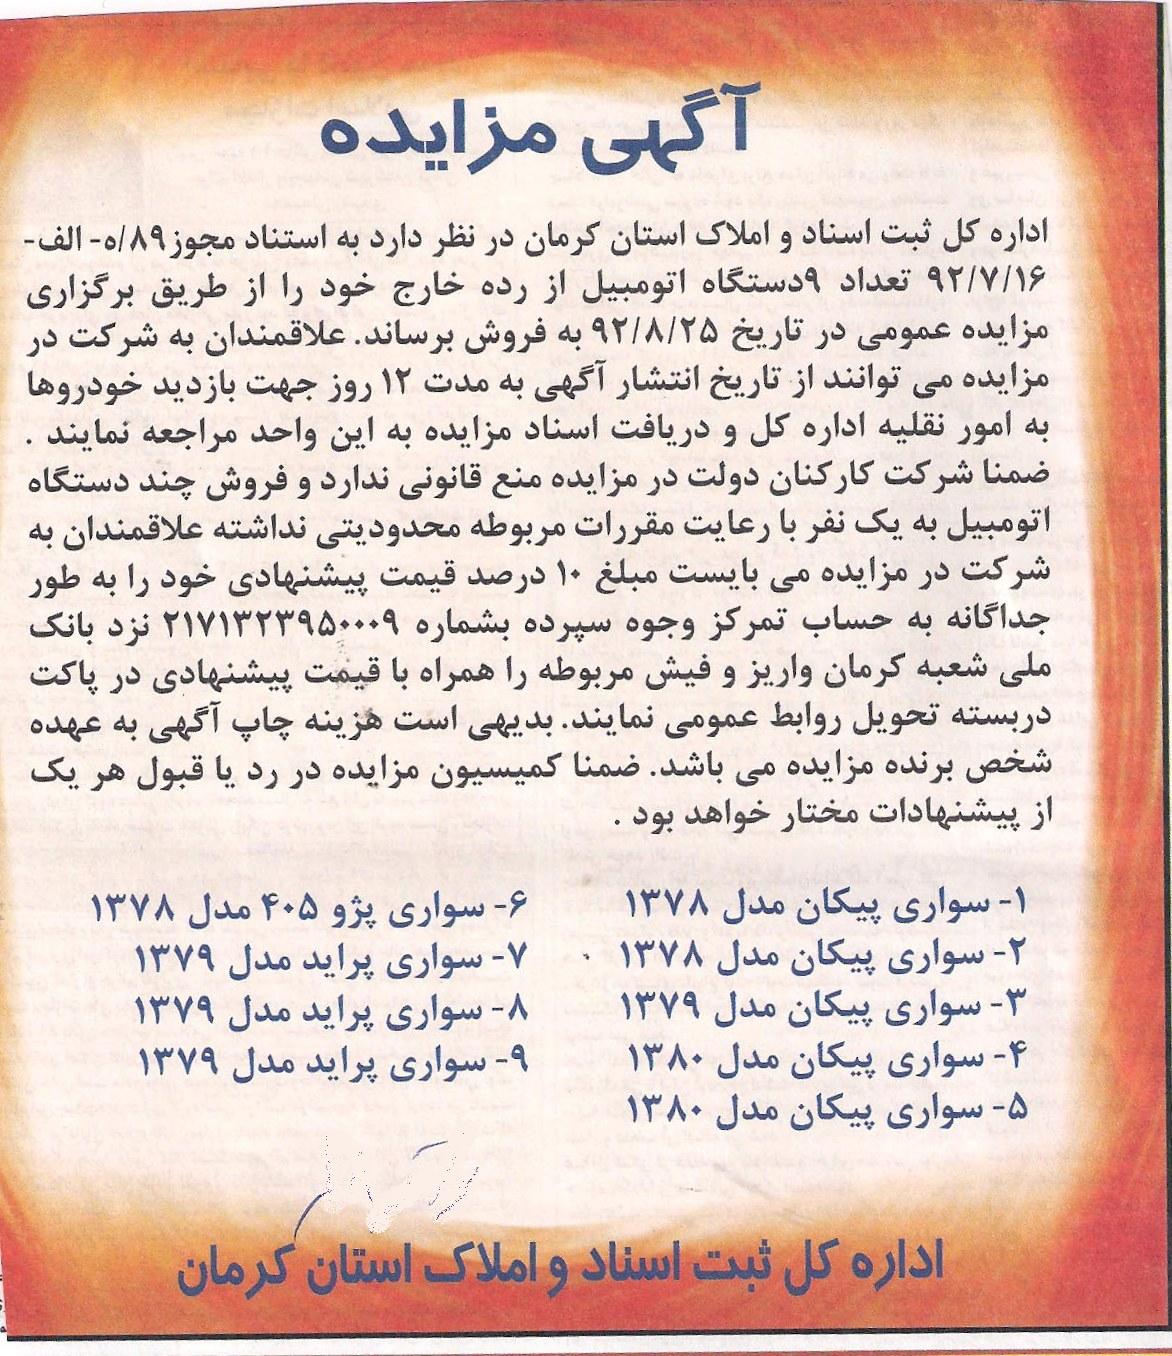 آگهی مزایده
اداره کل ثبت اسناد و املاک استان کرمان در نظر دارد به استناد مجوز۸۹/ه- الف-
۹۲/۷/۱۶ تعداد ۹دستگاه اتومبیل از رده خارج خود را از طریق برگزاری
مزایده عمومی در تاریخ ۹۲/۸/۲۵ به فروش برساند. علاقمندان به شرکت در
مزایده می توانند از تاریخ انتشار آگهی به مدت ۱۲ روز جهت بازدید خودروها
به امور نقلیه اداره کل و دریافت اسناد مزایده به این واحد مراجعه نمایند .
ضمنا شرکت کارکنان دولت در مزایده منع قانونی ندارد و فروش چند دستگاه
اتومبیل به یک نفر با رعایت مقررات مربوطه محدودیتی نداشته علاقمندان به
شرکت در مزایده می بایست مبلغ ۱۰ درصد قیمت پیشنهادی خود را به طور
جداگانه به حساب تمرکز وجوه سپرده بشماره ۲۱۷۱۳۲۳۹۵۰۰۰۹ نزد بانک
ملی شعبه کرمان واریز و فیش مربوطه را همراه با قیمت پیشنهادی در پاکت
دربسته تحویل روابط عمومی نمایند. بدیهی است هزینه چاپ آگهی به عهده
شخص برنده مزایده می باشد. ضمنا کمیسیون مزایده در رد یا قبول هر یک
از پیشنهادات مختار خواهد بود .
۱- سواری پیکان مدل ۱۳۷۸
۲- سواری پیکان مدل ۱۳۷۸
۳- سواری پیکان مدل ۱۳۷۹
۴- سواری پیکان مدل ۱۳۸۰
۵- سواری پیکان مدل ۱۳۸۰
۶- سواری پژو ۴۰۵ مدل ۱۳۷۸
۷- سواری پراید مدل ۱۳۷۹
۸- سواری پراید مدل ۱۳۷۹
۹- سواری پراید مدل ۱۳۷۹
اداره کل ثبت اسناد و املاک استان کرمان